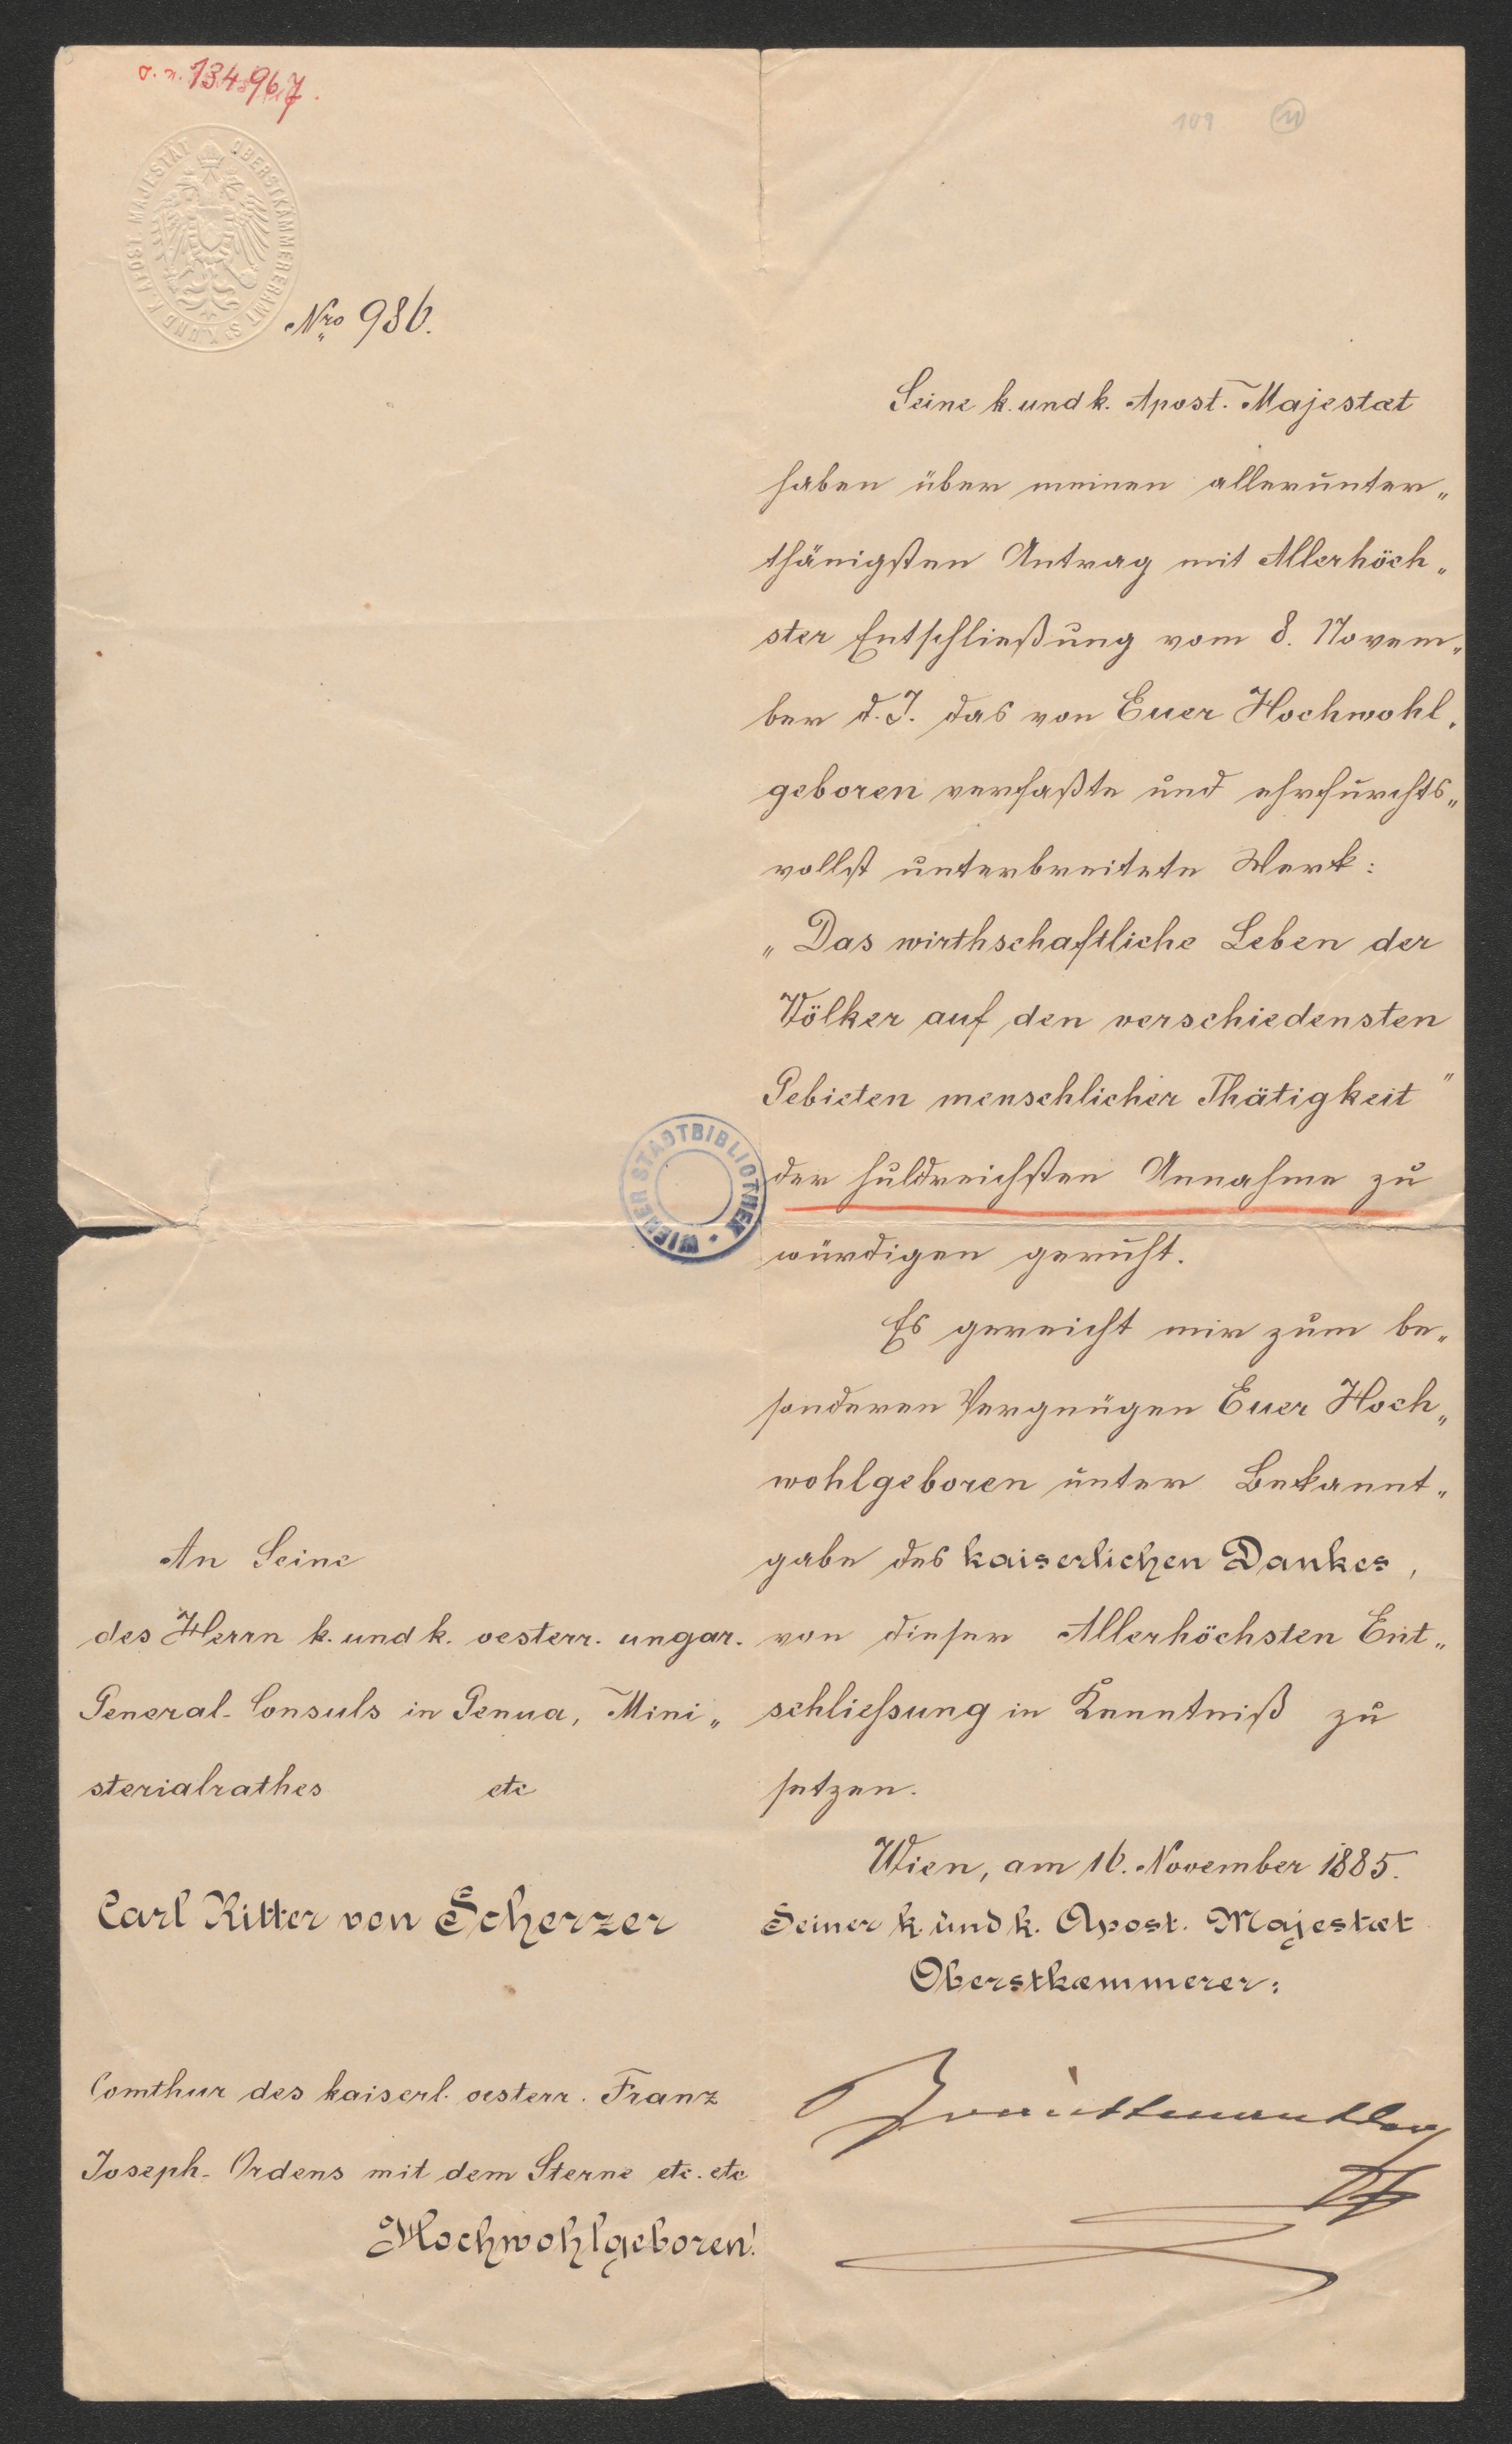 J. N. 134967.
109
11
OBERSTKÄMMERERAMT Sr K. UND K. APOST. MAJESTÄT
Nro 986.
Seine k. und k. Apost. Majestæt
haben über meinen allerunter„
thänigsten Antrag mit Allerhöch„
ster Entschließung vom 8. Novem„
ber d. J. das von Euer Hochwohl„
geboren verfaßte und ehrfurchts„
vollst unterbreitete Werk:
„Das wirthschaftliche Leben der
Völker auf den verschiedensten
Gebieten menschlicher Thätigkeit"
der huldreichsten Annahme zu
würdigen geruht.
Es gereicht mir zum be„
sonderen Vergnügen Euer Hoch„
wohlgeboren unter Bekannt„
gabe des kaiserlichen Dankes,
von dieser Allerhöchsten Ent„
schließung in Kenntniß zu
setzen.
Wien, am 16. November 1885.
Seiner k. und k. Apost. Majestæt
Oberstkæmmerer:
WIENER STADTBIBLIOTHEK
An Seine
des Herrn k. und k. oesterr. ungar.
General-Consuls in Genua, Mini„
sterialrathes etc
Carl Ritter von Scherzer
Comthur des kaiserl. oesterr. Franz
Joseph-Ordens mit dem Sterne etc. etc
Hochwohlgeboren!